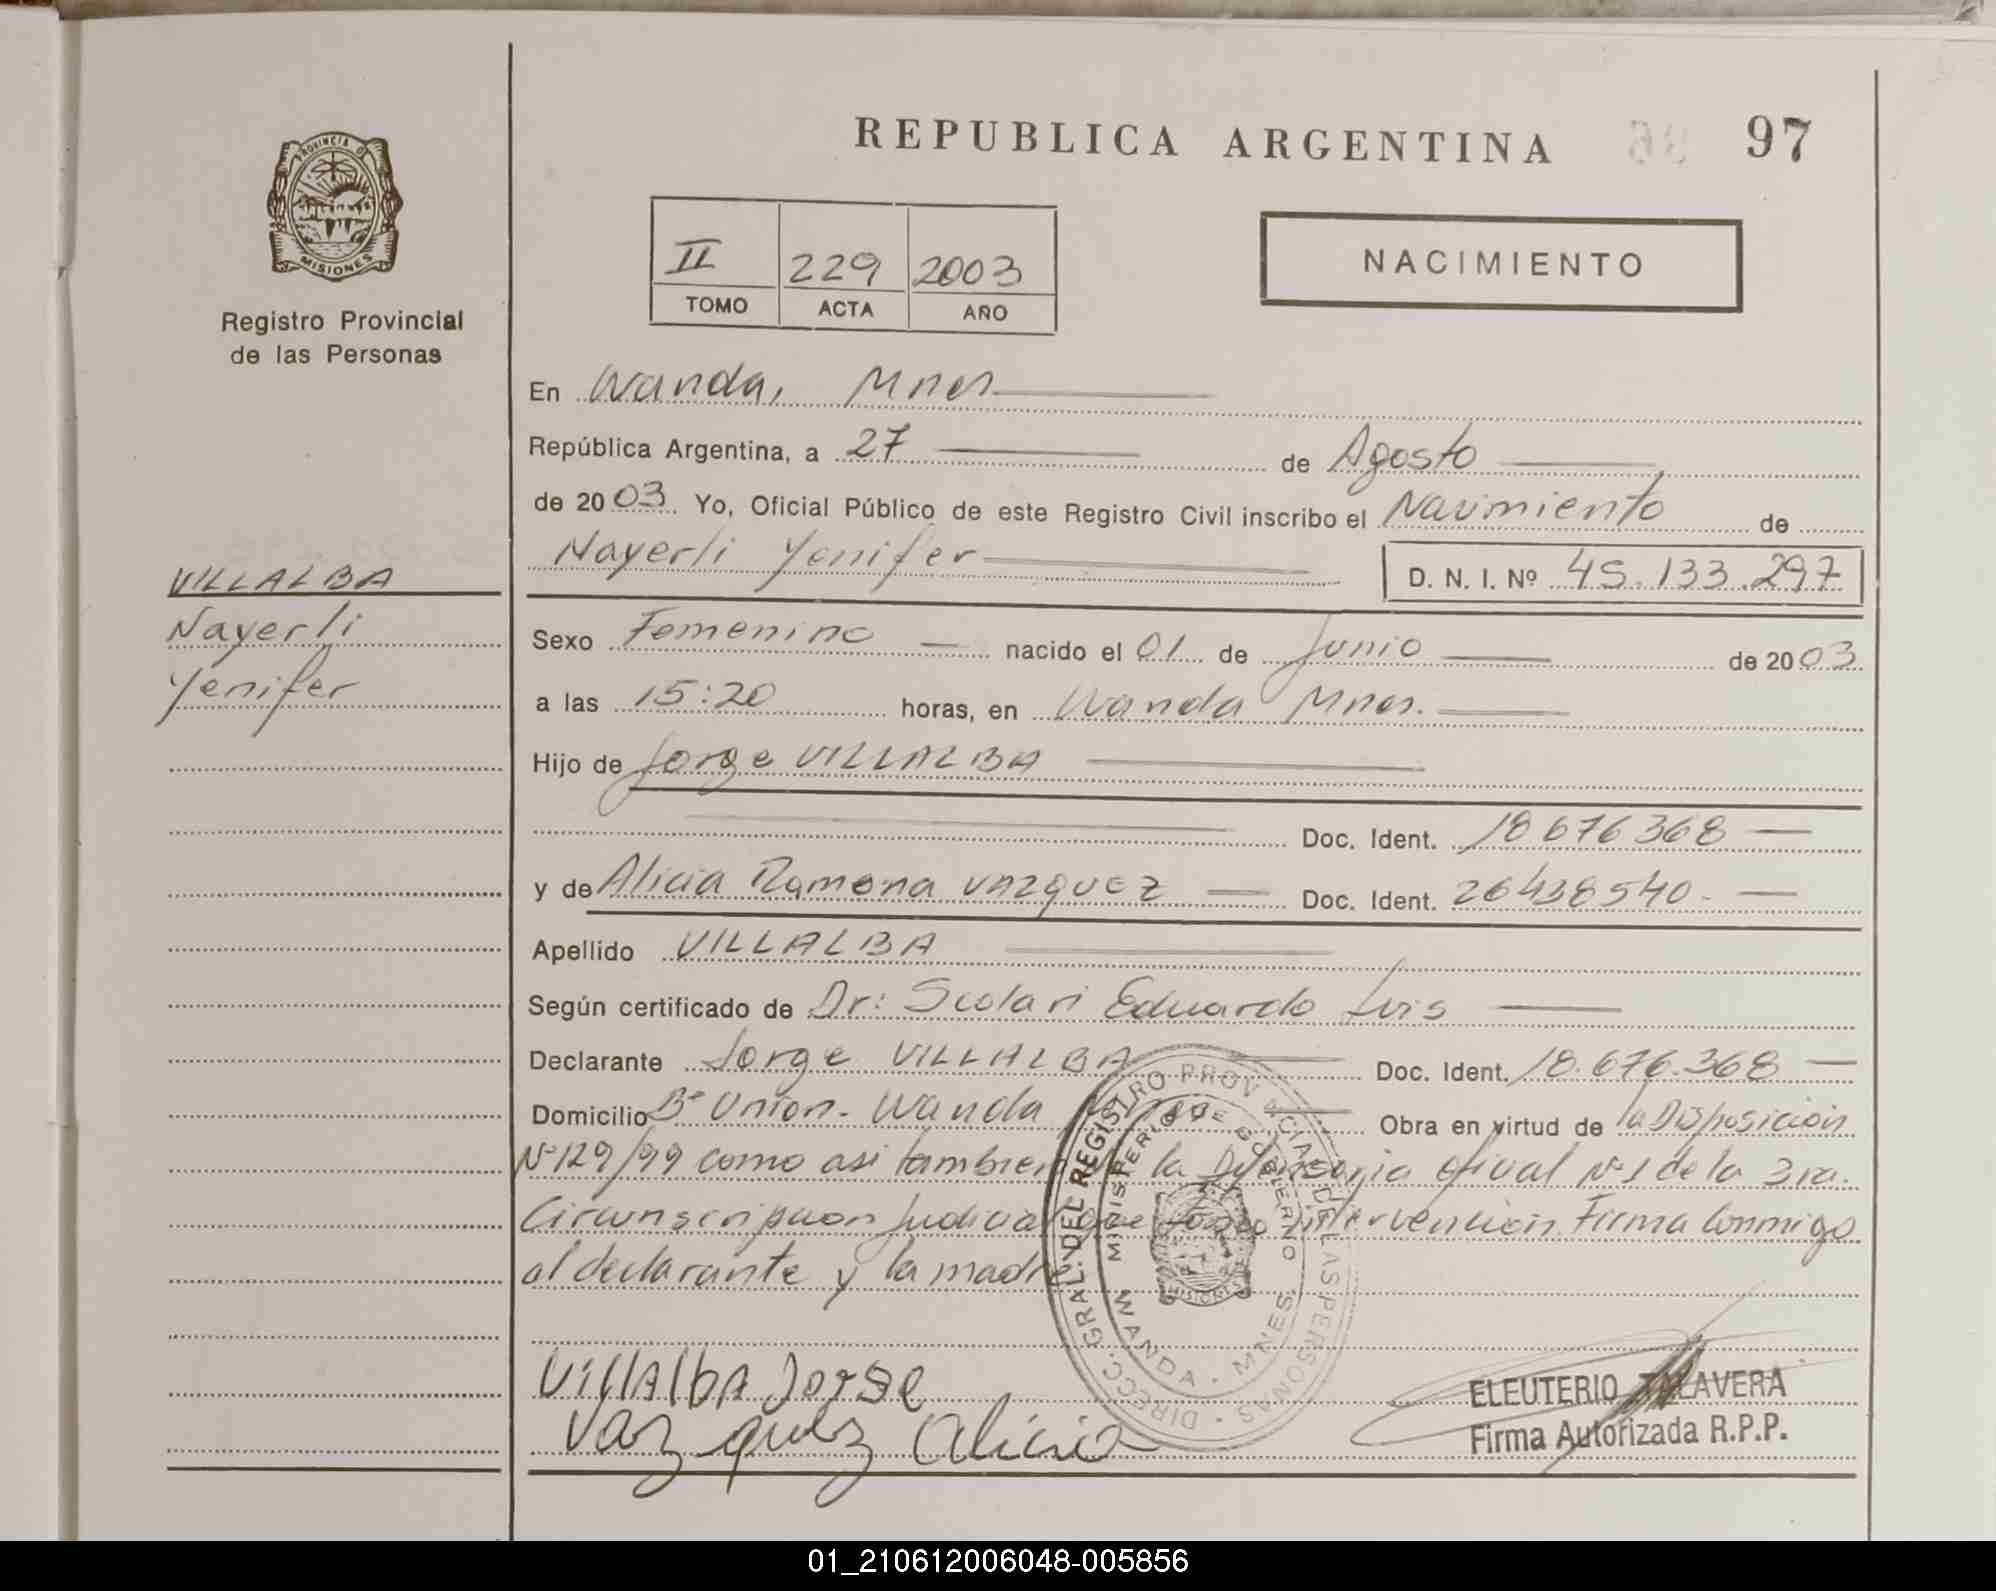 PROVINCIA DE
MISIONES
Registro Provincial
de las Personas
VILLALBA
Nayerli
Yenifer
REPUBLICA ARGENTINA 97
II 229 2003
TOMO ACTA AÑO
NACIMIENTO
En Wanda, Mnes
República Argentina, a 27 de Agosto
de 2003. Yo, Oficial Público de este Registro Civil inscribo el Nacimiento de
Nayerli Yenifer D. N. I. Nº 45.133.297
Sexo Femenino nacido el 01 de Junio de 2003
a las 15:20 horas, en Wanda Mnes.
Hijo de Jorge VILLALBA
Doc. Ident. 18676368
y de Alicia Ramona VAZQUEZ Doc. Ident. 26438540
Apellido VILLALBA
Según certificado de Dr: Scolari Eduardo Luis
Declarante Jorge VILLALBA Doc. Ident. 18.676.368
Domicilio Bº Union - Wanda Obra en virtud de la Disposición
Nº 129/99 como asi tambien la Defensoria oficial Nº1 de la 3ra.
Circunscripcion Judicial que tomo intervencion. Firma Conmigo
el declarante y la madre
DIRECC. GRAL. DEL REGISTRO PROVINCIAL DE LAS PERSONAS
MINISTERIO DE GOBIERNO
WANDA - MNES
MISIONES
Villalba Jorge
Vazquez Alicia
ELEUTERIO TALAVERA
Firma Autorizada R.P.P.
01_210612006048-005856